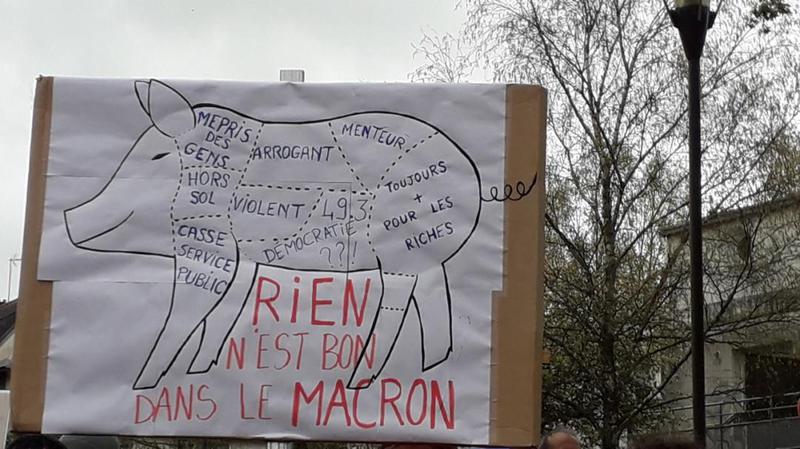 MEPRIS
DES
GENS
HORS
SOL
CASSE
SERVICE
PUBLIC
ARROGANT
VIOLENT
49 3
DÉMOCRATIE
??!
MENTEUR
TOUJOURS
+
POUR LES
RICHES
RIEN
N'EST BON
DANS LE MACRON